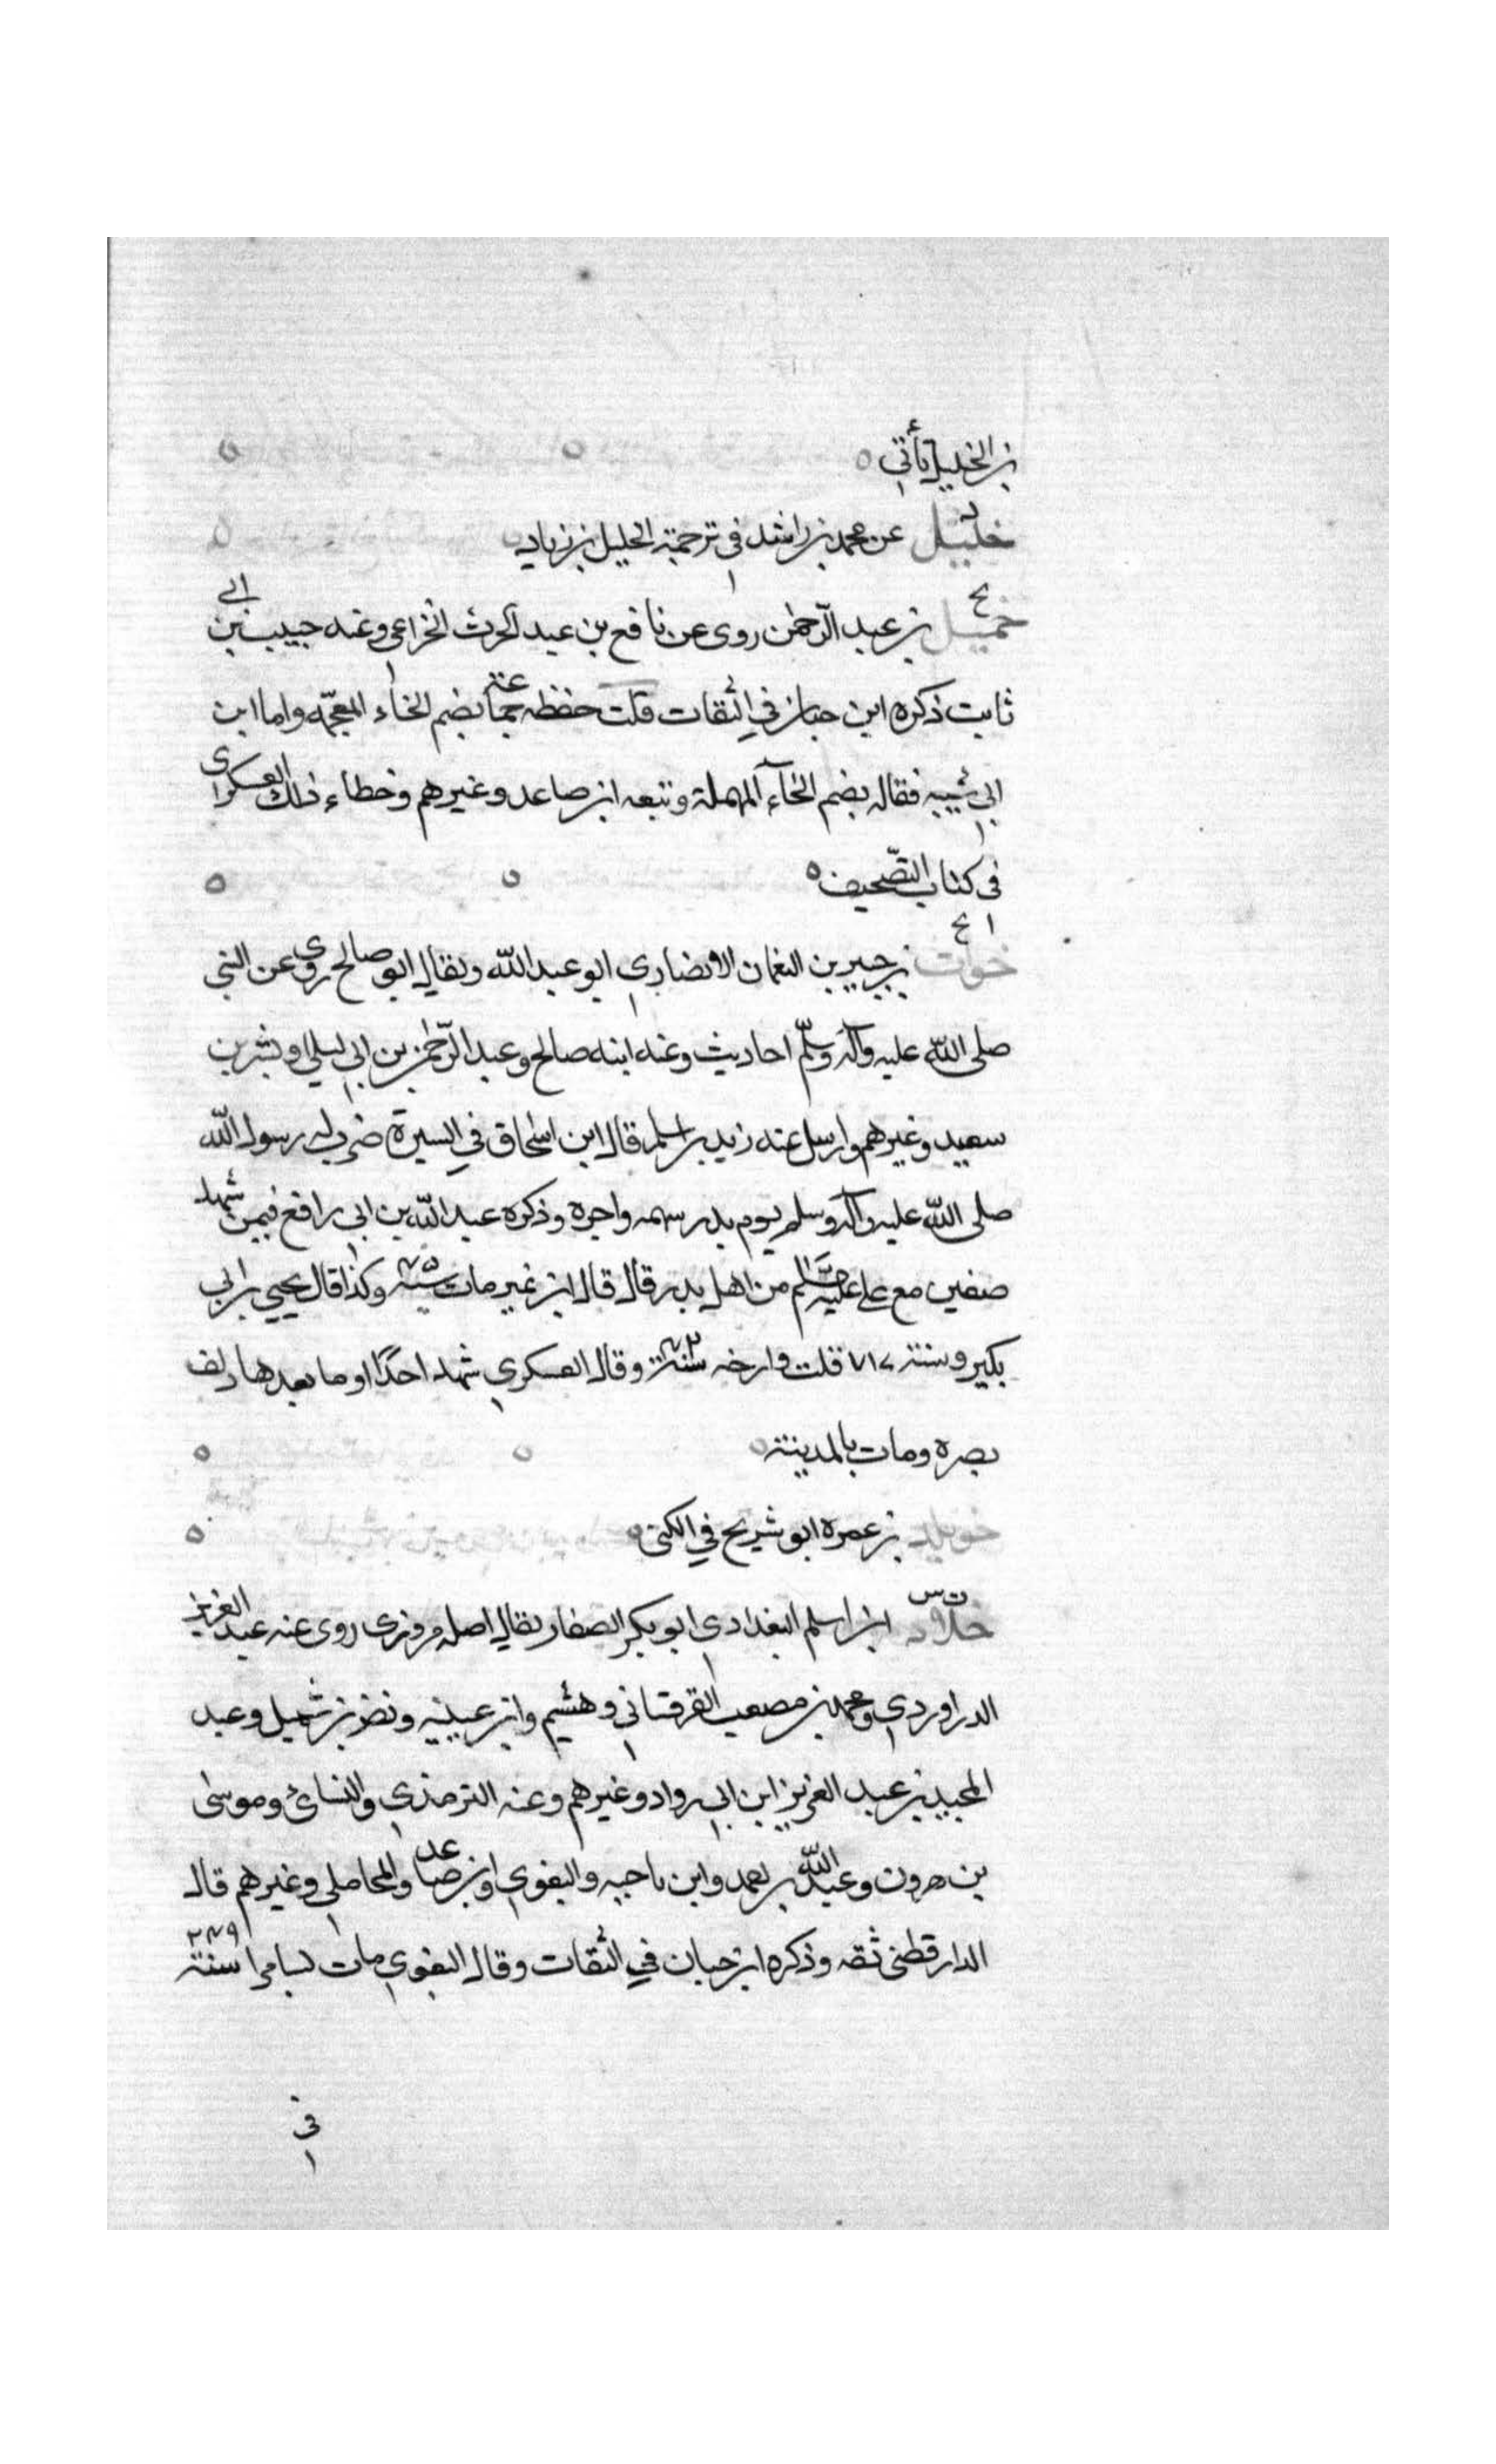 بن الخليل يأتي
خليل عن محمد بن راشد في ترجمة الخليل بن زياد
خميل بن عبد الرحمن روى عن نافع بن عبد الحرث الخزاعي وعنه حبيب بن ابي
ثابت ذكره ابن حبان في الثقات قلت بضم الخاء المعجمه واما ابن
ابي شيبه فقاله بضم الخآء المهملة وتبعه ابن صاعد وغيرهم وخطاء ذلك العسكري
في كتاب التصّحيف
خوات بن جبير بن النعمان الانصاري ابو عبد اللّه ويقال ابو صالح روى عن النبي
صلى اللّه عليه وآله وسلّم احاديث وعنه ابنه صالح وعبد الرّحمن بن ابي ليلى وبشر بن
سعيد وغيرهم وارسل عنه زيد بن اسلم قال ابن اسحاق في السيرة ضرب له رسول اللّه
صلى اللّه عليه وآله وسلم يوم بدر سهمه واجره وذكره عبد اللّه بن ابي رافع فيمن شهد
صفين مع علي عليه السلم من اهل بدر قال قال ابن نمير مات سنة وكذا قال يحيى بن ابي
بكير وسنته ٧١ قلت وارخه سنة وقال العسكري شهد احدًا وما بعدها وكف
بصره ومات بالمدينة
خويلد بن عمره ابو شريح في الكنى
ت س
خلاد ابن اسلم البغدادي ابو بكر الصفار يقال اصله مروزى روى عنه عبد العزيز
الدراوردي ومحمد بن مصعب القرقساني وهشيم وابن عيينيه ونضر بن شميل وعبد
المجيد بن عبد العزيز ابن ابي رواد وغيرهم وعنه الترمذي والنسائ وموسى
بن هرون وعبد اللّه بن احمد وابن ناجيه والبغوي وابن صاعد والمحاملي وغيرهم قال
الدارقطني ثقه وذكره ابن حبان في الثقات وقال البغوي مات بسامرا سنة ٢٤٩
في